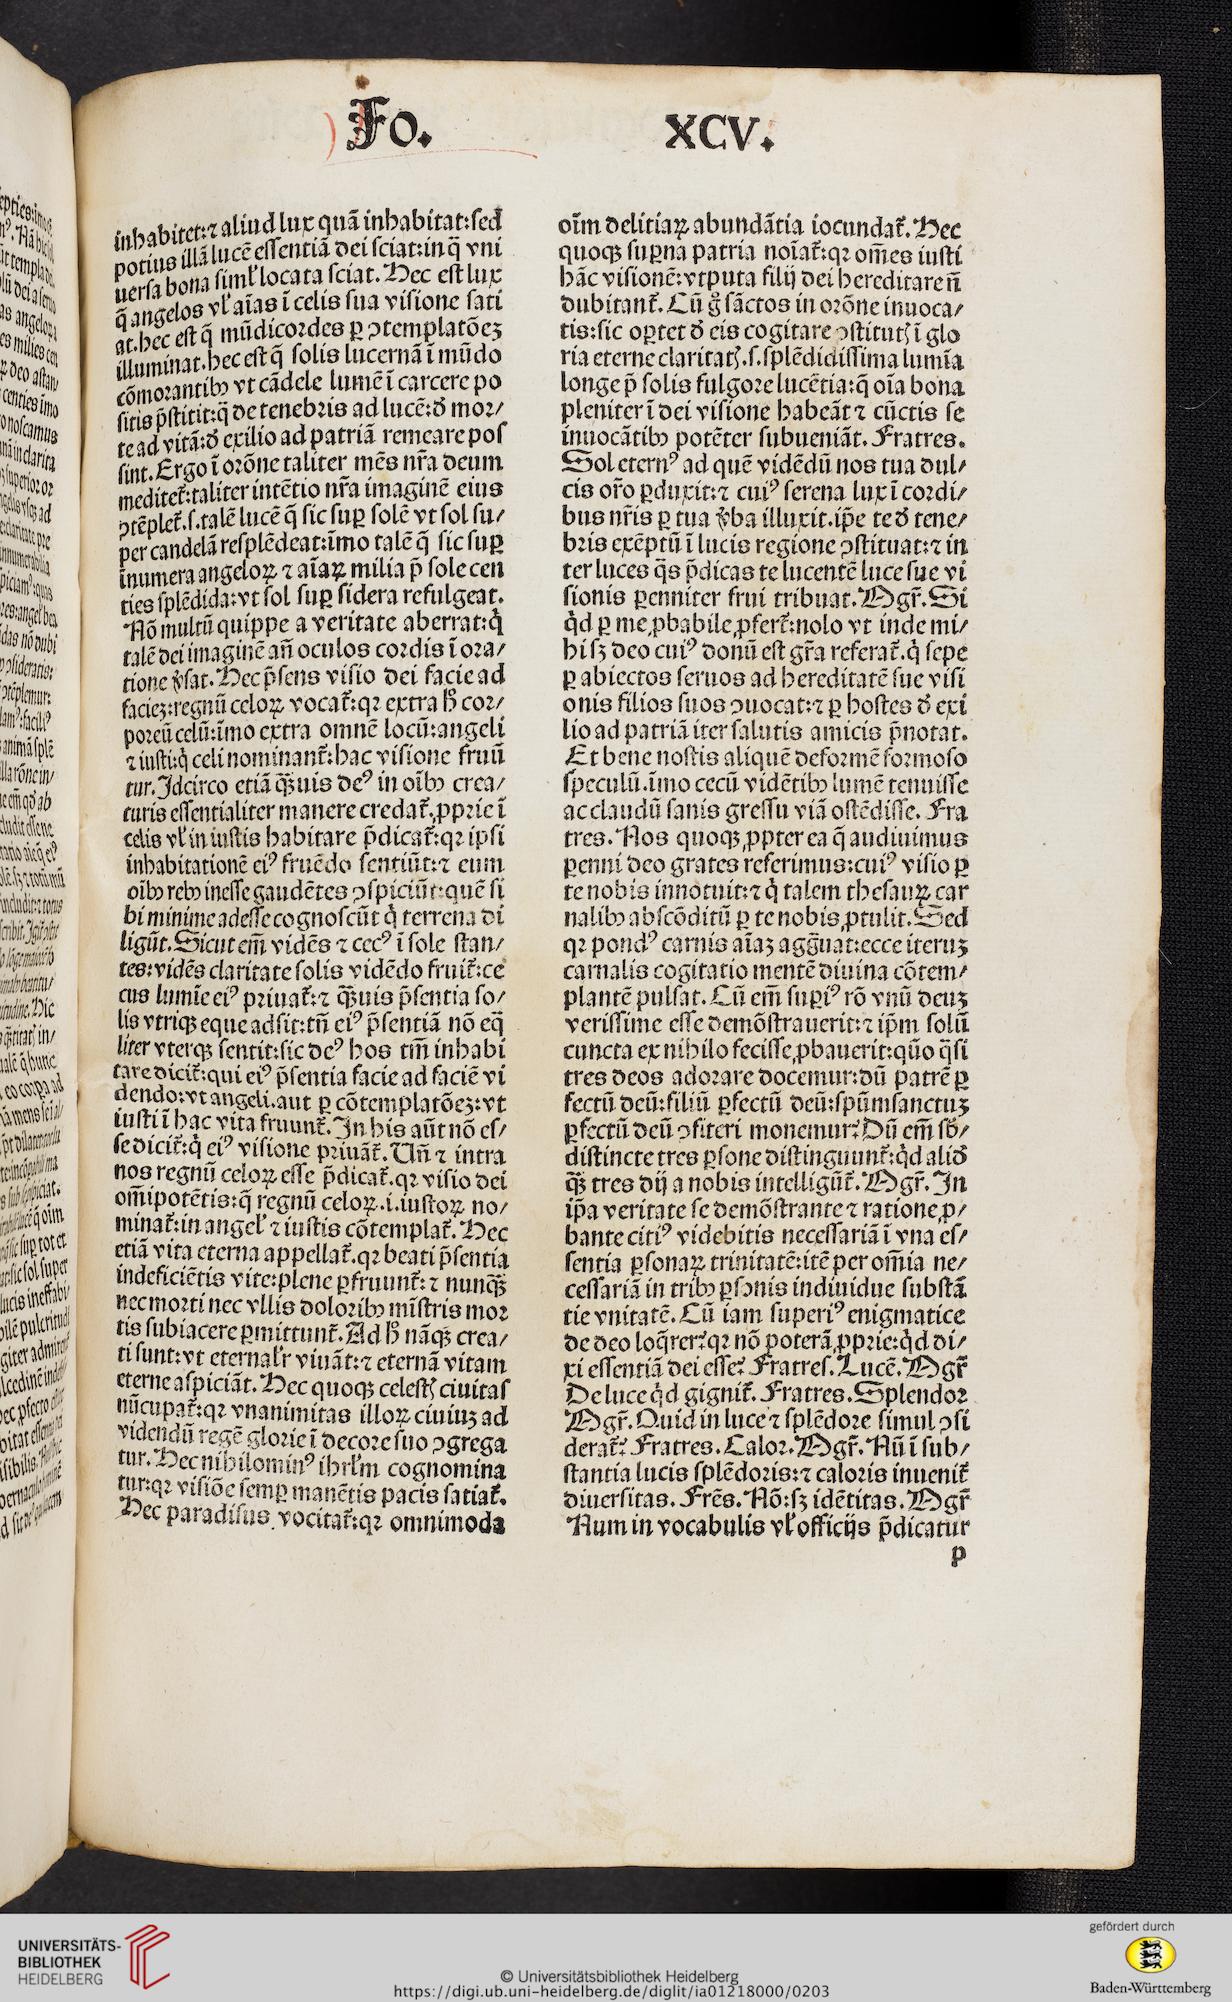 Fo. XCV.
inhabitet:⁊ aliud lux quã inhabitat:sed
potius illã lucẽ essentiã dei sciat:in q̃ vni
uersa bona simĺ locata sciat. Hec est lux
q̃ angelos vĺ aĩas ĩ celis sua visione sati
at.hec est q̃ mũdicordes ꝑ ↄtemplatõeꝫ
illuminat.hec est q̃ solis lucernã ĩ mũdo
cõmorantibꝰ vt cãdele lumẽ ĩ carcere po
sitis p̃stitit:q̃ de tenebris ad lucẽ:ď mor/
te ad vitã:ď exilio ad patriã remeare pos
sint. Ergo ĩ orõne taliter mẽs nr̃a deum
meditet̃:taliter intẽtio nr̃a imaginẽ eius
ↄtẽplet̃.s.talẽ lucẽ q̃ sic suꝑ solẽ vt sol su/
per candelã resplẽdeat:ĩmo talẽ q̃ sic suꝑ
ĩnumera angeloꝝ ⁊ aĩaꝝ milia p̃ sole cen
ties splẽdida:vt sol suꝑ sidera refulgeat.
Nõ multũ quippe a veritate aberrat:q̇
talẽ dei imaginẽ añ oculos cordis ĩ ora/
tione v̾sat. Hec p̃sens visio dei facie ad
facieꝫ:regnũ celoꝝ vocat̃:qꝛ extra h̃ cor/
poreũ celũ:ĩmo extra omnẽ locũ:angeli
⁊ iusti:q̇ celi nominant̃:hac visione fruũ
tur. Idcirco etiã q̃ꝫuis deꝰ in oĩbꝰ crea/
turis essentialiter manere credat̃,ꝓprie ĩ
celis vĺ in iustis habitare p̃dicat̃:qꝛ ipsi
inhabitationẽ eiꝰ fruẽdo sentiũt:⁊ eum
oĩbꝰ rebꝰ inesse gaudẽtes ↄspiciũt:quẽ si
bi minime adesse cognoscũt q̇ terrena di
ligũt. Sicut em̃ vidẽs ⁊ cecꝰ ĩ sole stan/
tes:vidẽs claritate solis vidẽdo fruit̃:ce
cus lumĩe eiꝰ priuat̃:⁊ q̃ꝫuis p̃sentia so/
lis vtriqꝫ eque adsit:tñ eiꝰ p̃sentiã nõ eq̃
liter vterqꝫ sentit:sic deꝰ hos tm̃ inhabi
tare dicit̃:qui eiꝰ p̃sentia facie ad faciẽ vi
dendo:vt angeli.aut ꝑ cõtemplatõeꝫ:vt
iusti ĩ hac vita fruunt̃. In his aũt nõ es/
se dicit̃:q̇ eiꝰ visione priuãt̃. Uñ ⁊ intra
nos regnũ celoꝝ esse p̃dicat̃.qꝛ visio dei
om̃ipotẽtis:q̃ regnũ celoꝝ.i.iustoꝝ no/
minat̃:in angeĺ ⁊ iustis cõtemplat̃. Hec
etiã vita eterna appellat̃.qꝛ beati p̃sentia
indeficiẽtis vite:plene ꝑfruunt̃:⁊ nunq̃ꝫ
nec morti nec vllis doloribꝰ mĩstris mor
tis subiacere ꝑmittunt̃. Ad h̃ nãqꝫ crea/
ti sunt:vt eternaĺr viuãt:⁊ eternã vitam
eterne aspiciãt. Hec quoqꝫ celestꝭ ciuitas
nũcupat̃:qꝛ vnanimitas illoꝝ ciuiuꝫ ad
videndũ regẽ glorie ĩ decore suo ↄgrega
tur. Hec nihilominꝰ ihrĺm cognomina
tur:qꝛ visiõe semꝑ manẽtis pacis satiat̃.
Hec paradisus vocitat̃:qꝛ omnimoda
oĩm delitiaꝝ abundãtia iocundat̃. Hec
quoqꝫ suꝑna patria noĩat̃:qꝛ om̃es iusti
hãc visionẽ:vtputa filij dei hereditare ñ
dubitant̃. Cũ g̃ sãctos in orõne inuoca/
tis:sic oꝑtet ď eis cogitare ↄstitutꝭ ĩ glo
ria eterne claritatꝭ.s.splẽdidissima lumĩa
longe p̃ solis fulgore lucẽtia:q̃ oĩa bona
pleniter ĩ dei visione habeãt ⁊ cũctis se
inuocãtibꝰ potẽter subueniãt. Fratres.
Sol eternꝰ ad quẽ vidẽdũ nos tua dul/
cis or̃o ꝑduxit:⁊ cuiꝰ serena lux ĩ cordi/
bus nr̃is ꝑ tua v̾ba illuxit.ip̃e te ď tene/
bris exẽptũ ĩ lucis regione ↄstituat:⁊ in
ter luces q̃s p̃dicas te lucentẽ luce sue vi
sionis ꝑenniter frui tribuat. Mgr̃. Si
q̇d ꝑ me ꝓbabile ꝓfert̃:nolo vt inde mi/
hi sꝫ deo cuiꝰ donũ est gr̃a referat̃.q̇ sepe
ꝑ abiectos seruos ad hereditatẽ sue visi
onis filios suos ↄuocat:⁊ ꝑ hostes ď exi
lio ad patriã iter salutis amicis p̃notat.
Et bene nostis aliquẽ deformẽ formoso
speculũ.ĩmo cecũ vidẽtibꝰ lumẽ tenuisse
ac claudũ sanis gressu viã ostẽdisse. Fra
tres. Nos quoqꝫ ꝓpter ea q̃ audiuimus
ꝑenni deo grates referimus:cuiꝰ visio ꝑ
te nobis innotuit:⁊ q̇ talem thesauꝝ car
nalibꝰ abscõditũ ꝑ te nobis ꝓtulit. Sed
qꝛ pondꝰ carnis aĩaꝫ agg̃uat:ecce iteruꝫ
carnalis cogitatio mentẽ diuina cõtem/
plantẽ pulsat. Cũ em̃ supiꝰ rõ vnũ deuꝫ
verissime esse demõstrauerit:⁊ ip̃m solũ
cuncta ex nihilo fecisse ꝓbauerit:quõ q̃si
tres deos adorare docemur:dũ patrẽ ꝑ
fectũ deũ:filiũ ꝑfectũ deũ:spũmsanctuꝫ
ꝑfectũ deũ ↄfiteri monemur? Dũ em̃ sb̃/
distincte tres ꝑsone distinguunt̃:q̇d aliď
q̃ꝫ tres dij a nobis intelligũt̃. Mgr̃. In
ip̃a veritate se demõstrante ⁊ ratione ꝓ/
bante citiꝰ videbitis necessariã ĩ vna es/
sentia ꝑsonaꝝ trinitatẽ:itẽ per om̃ia ne/
cessariã in tribꝰ ꝑsonis indiuidue substã
tie vnitatẽ. Cũ iam superiꝰ enigmatice
de deo loq̃rer:qꝛ nõ poterã ꝓprie:q̇d di/
xi essentiã dei esse? Fratres. Lucẽ. Mgr̃
De luce q̇d gignit̃. Fratres. Splendor
Mgr̃. Quid in luce ⁊ splẽdore simul ↄsi
derat̃? Fratres. Calor. Mgr̃. Nũ ĩ sub/
stantia lucis splẽdoris:⁊ caloris inuenit̃
diuersitas. Frẽs. Nõ:sꝫ idẽtitas. Mgr̃
Num in vocabulis vĺ officijs p̃dicatur
p
UNIVERSITÄTS-
BIBLIOTHEK
HEIDELBERG
© Universitätsbibliothek Heidelberg
https://digi.ub.uni-heidelberg.de/diglit/ia01218000/0203
gefördert durch
Baden-Württemberg